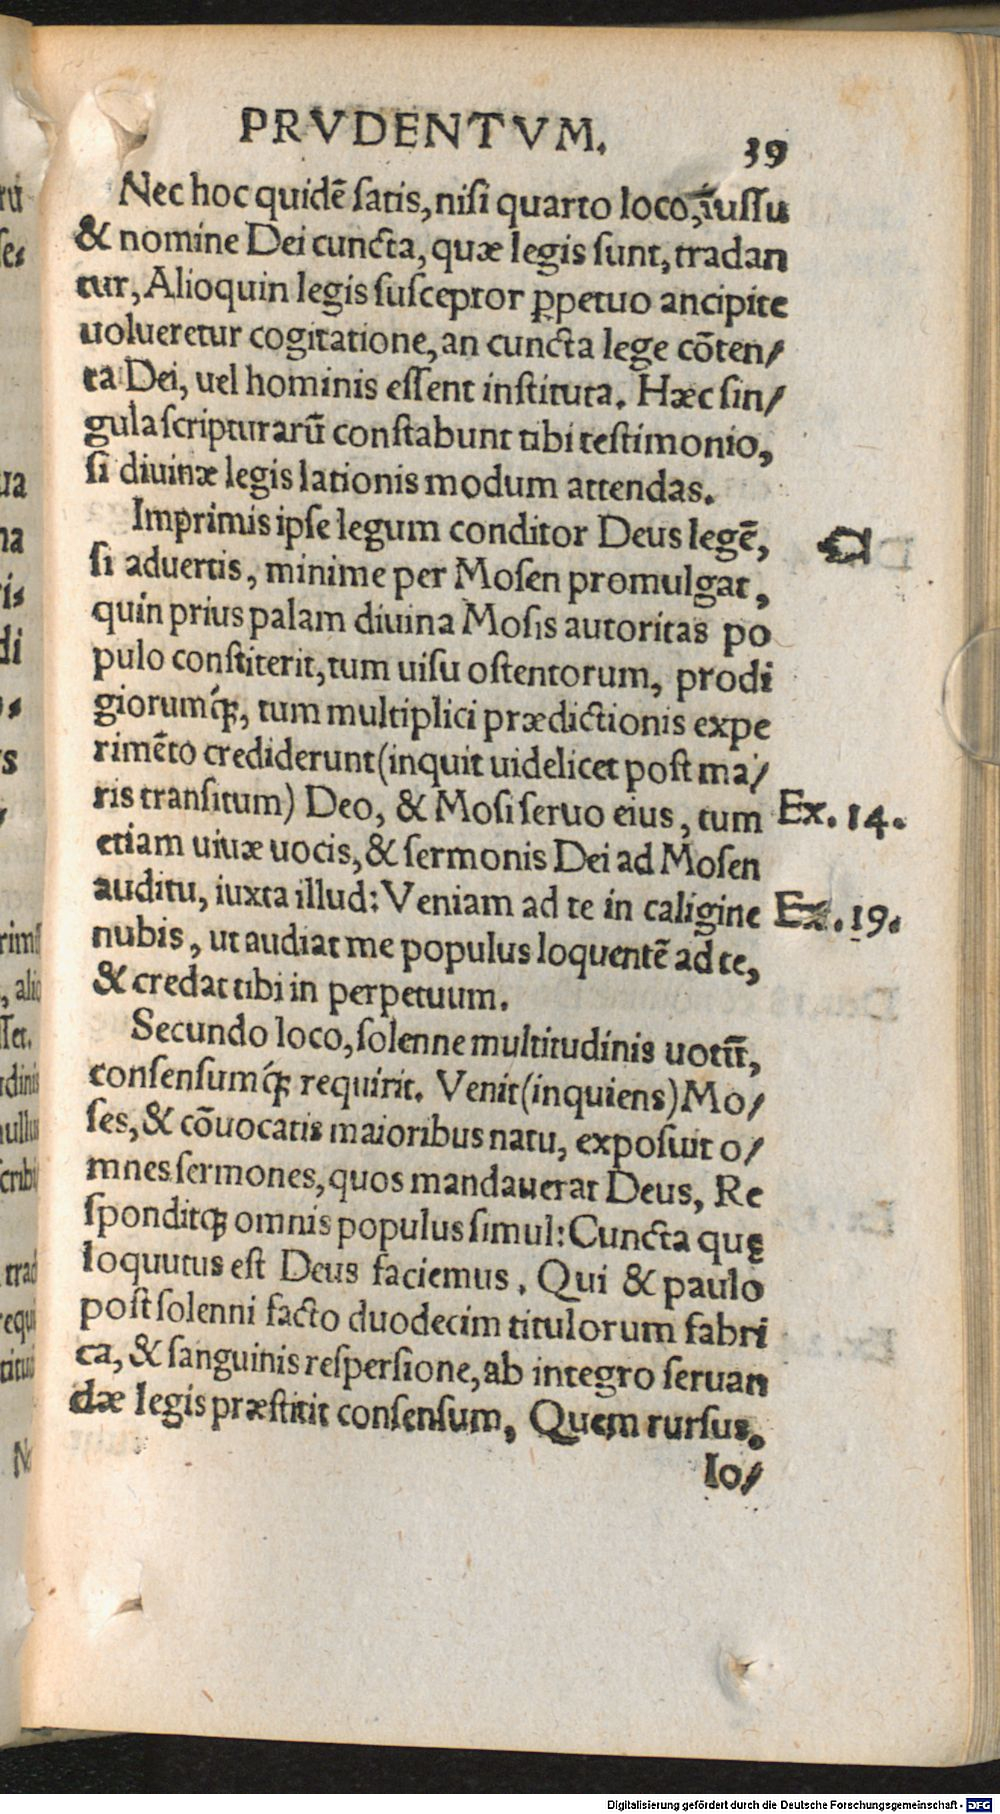 PRVDENTVM. 39
Nec hoc quidẽ ſatis, niſi quarto loco, iuſſu
& nomine Dei cuncta, quæ legis ſunt, tradan
tur, Alioquin legis ſuſceptor ꝑpetuo ancipite
uolueretur cogitatione, an cuncta lege cõten/
ta Dei, uel hominis eſſent inſtituta. Hæc ſin/
gula ſcripturarũ conſtabunt tibi teſtimonio,
ſi diuinæ legis lationis modum attendas.
Imprimis ipſe legum conditor Deus legẽ,
ſi aduertis, minime per Moſen promulgat,
quin prius palam diuina Moſis autoritas po
pulo conſtiterit, tum uiſu oſtentorum, prodi
giorumq́ꝫ, tum multiplici prædictionis expe
rimẽto crediderunt (inquit uidelicet poſt ma/
ris tranſitum) Deo, & Moſi ſeruo eius, tum
Ex. 14.
etiam uiuæ uocis, & ſermonis Dei ad Moſen
auditu, iuxta illud: Veniam ad te in caligine
Ex. 19.
nubis, ut audiat me populus loquentẽ ad te,
& credat tibi in perpetuum.
Secundo loco, ſolenne multitudinis uotũ,
conſenſumq́ꝫ requirit. Venit (inquiens) Mo/
ſes, & cõuocatis maioribus natu, expoſuit o/
mnes ſermones, quos mandauerat Deus, Re
ſponditqꝫ omnis populus ſimul: Cuncta quę
loquutus eſt Deus faciemus. Qui & paulo
poſt ſolenni facto duodecim titulorum fabri
ca, & ſanguinis reſperſione, ab integro ſeruan
dæ legis præſtitit conſenſum, Quem rurſus.
Io/
Digitalisierung gefördert durch die Deutsche Forschungsgemeinschaft - DFG